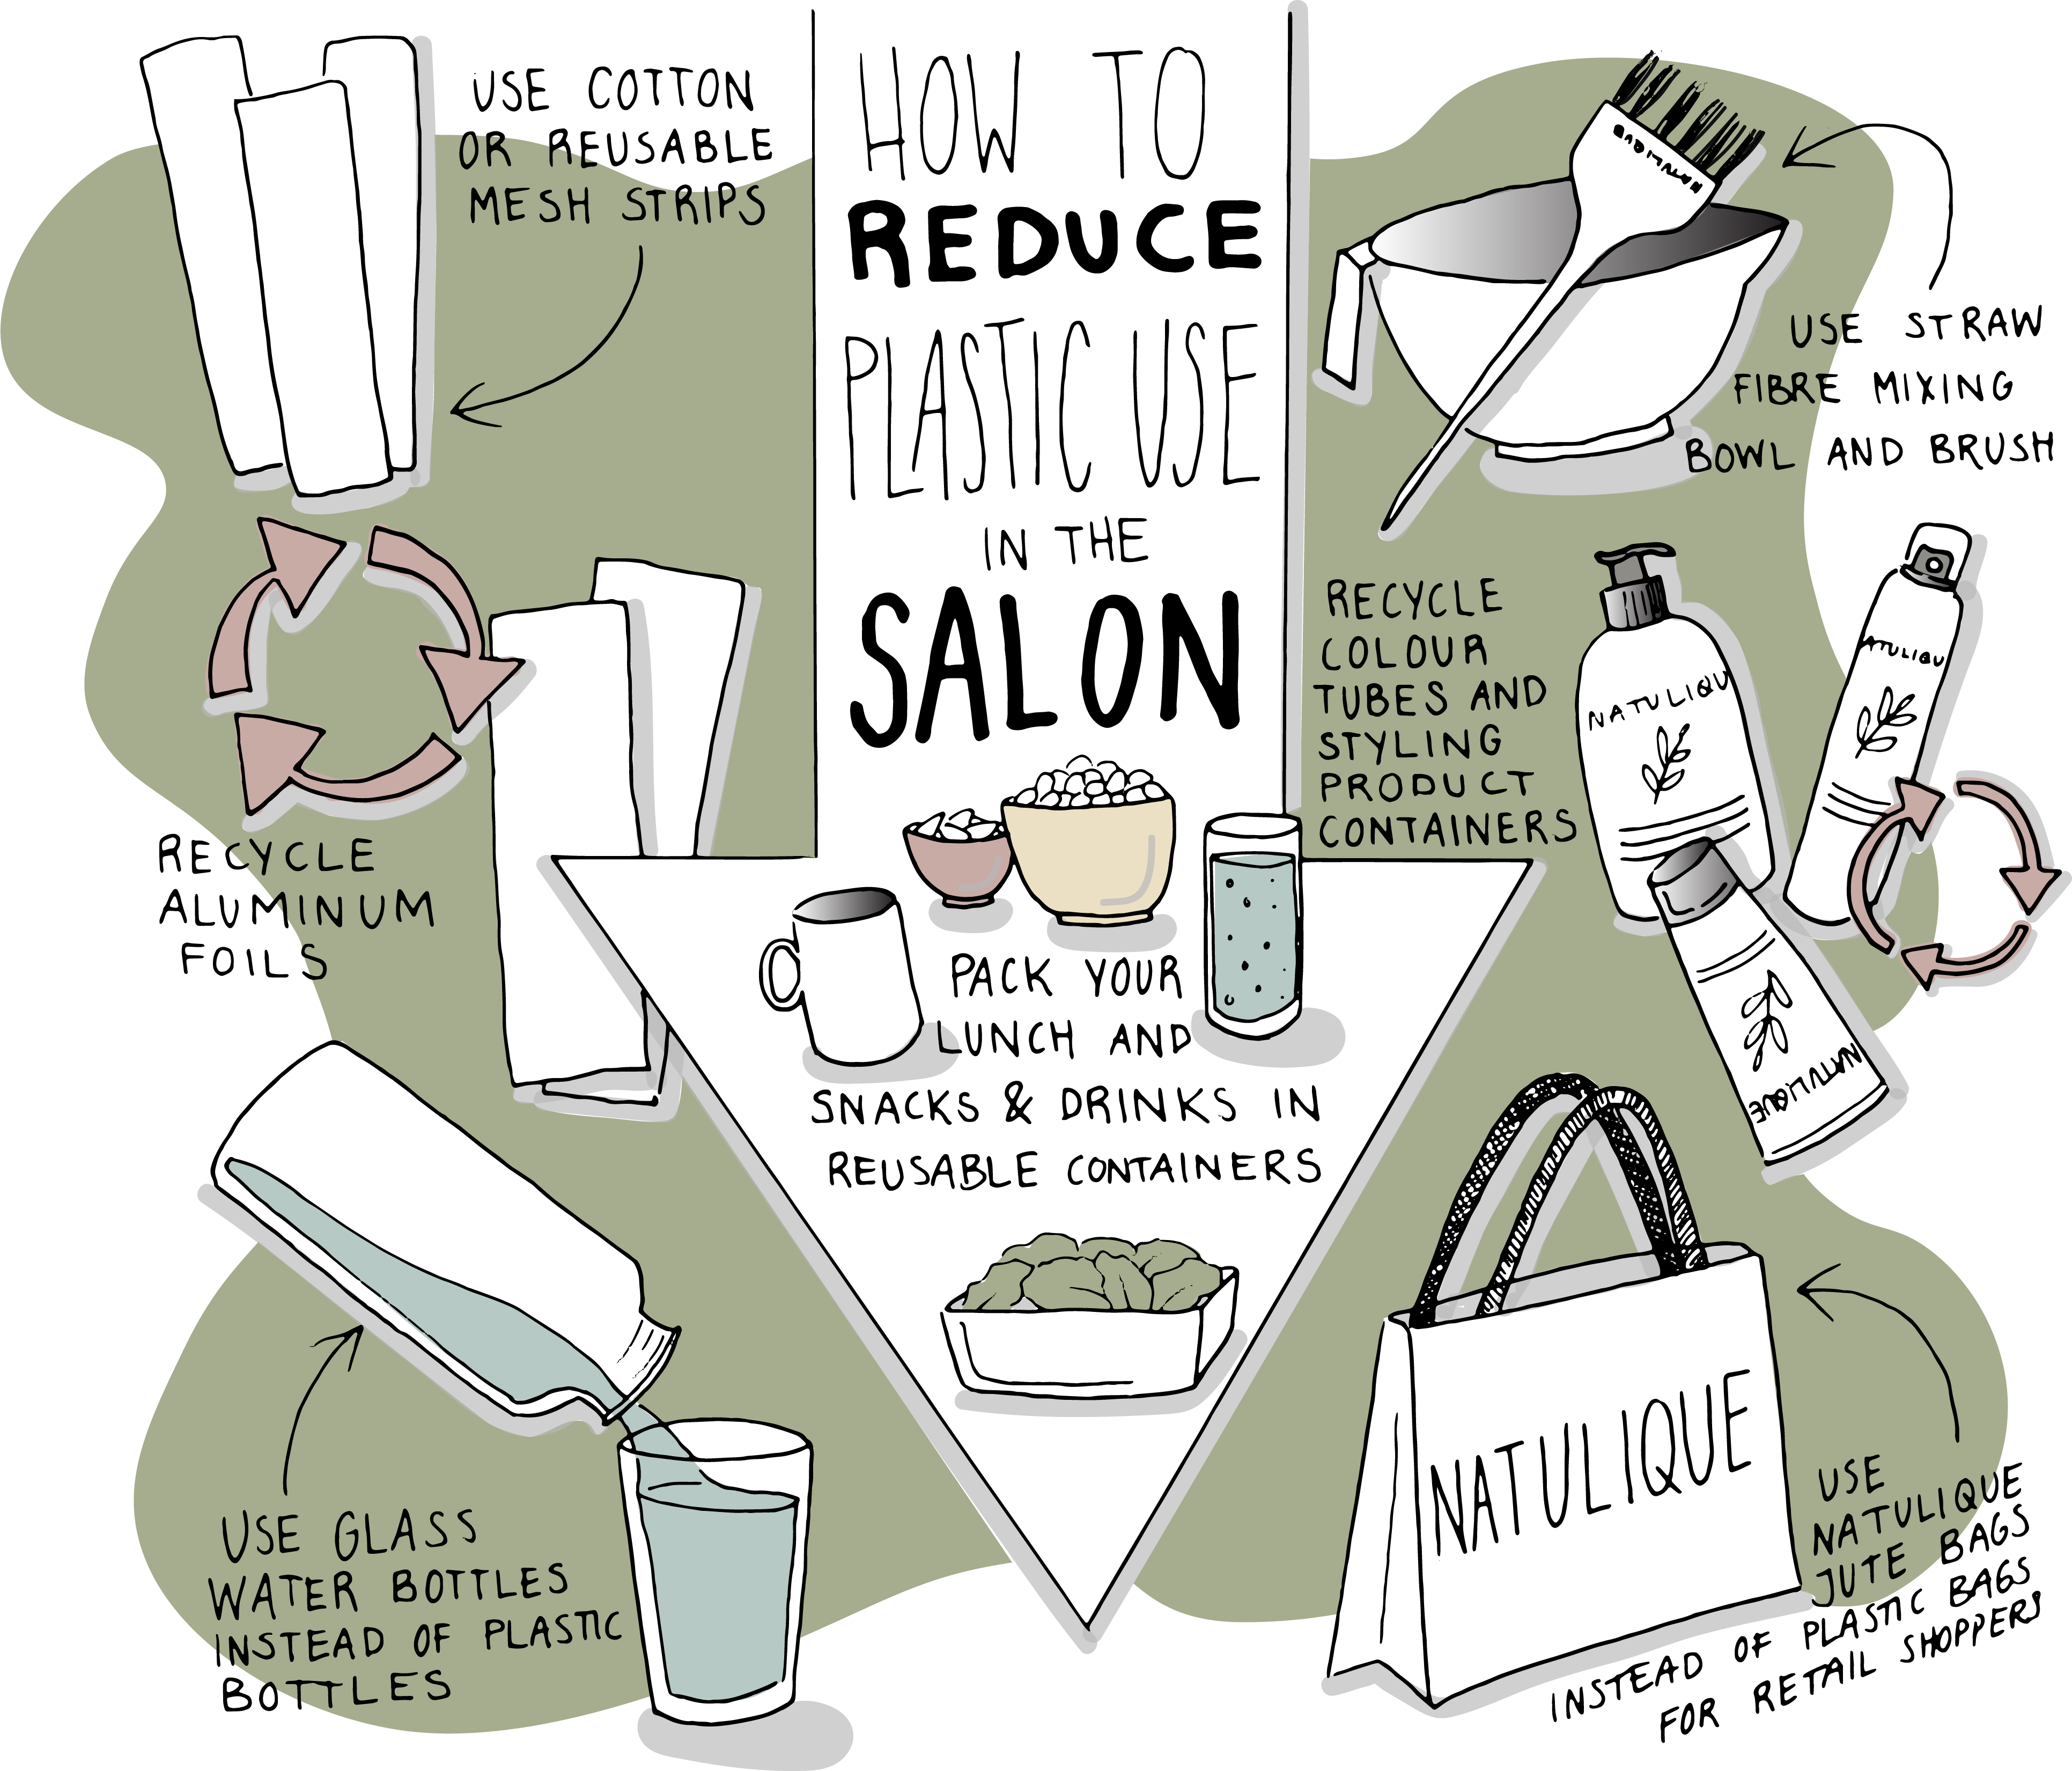 HOW TO
REDUCE
PLASTIC USE
IN THE
SALON
USE COTTON
OR REUSABLE
MESH STRIPS
RECYCLE
ALUMINUM
FOILS
USE GLASS
WATER BOTTLES
INSTEAD OF PLASTIC
BOTTLES
PACK YOUR
LUNCH AND
SNACKS & DRINKS IN
REUSABLE CONTAINERS
USE STRAW
FIBRE MIXING
BOWL AND BRUSH
RECYCLE
COLOUR
TUBES AND
STYLING
PRODUCT
CONTAINERS
NATULIQU
ATULIQU
NATULIQUE
NATULIQUE
USE
NATULIQUE
JUTE BAGS
INSTEAD OF PLASTIC BAGS
FOR RETAIL SHOPPERS